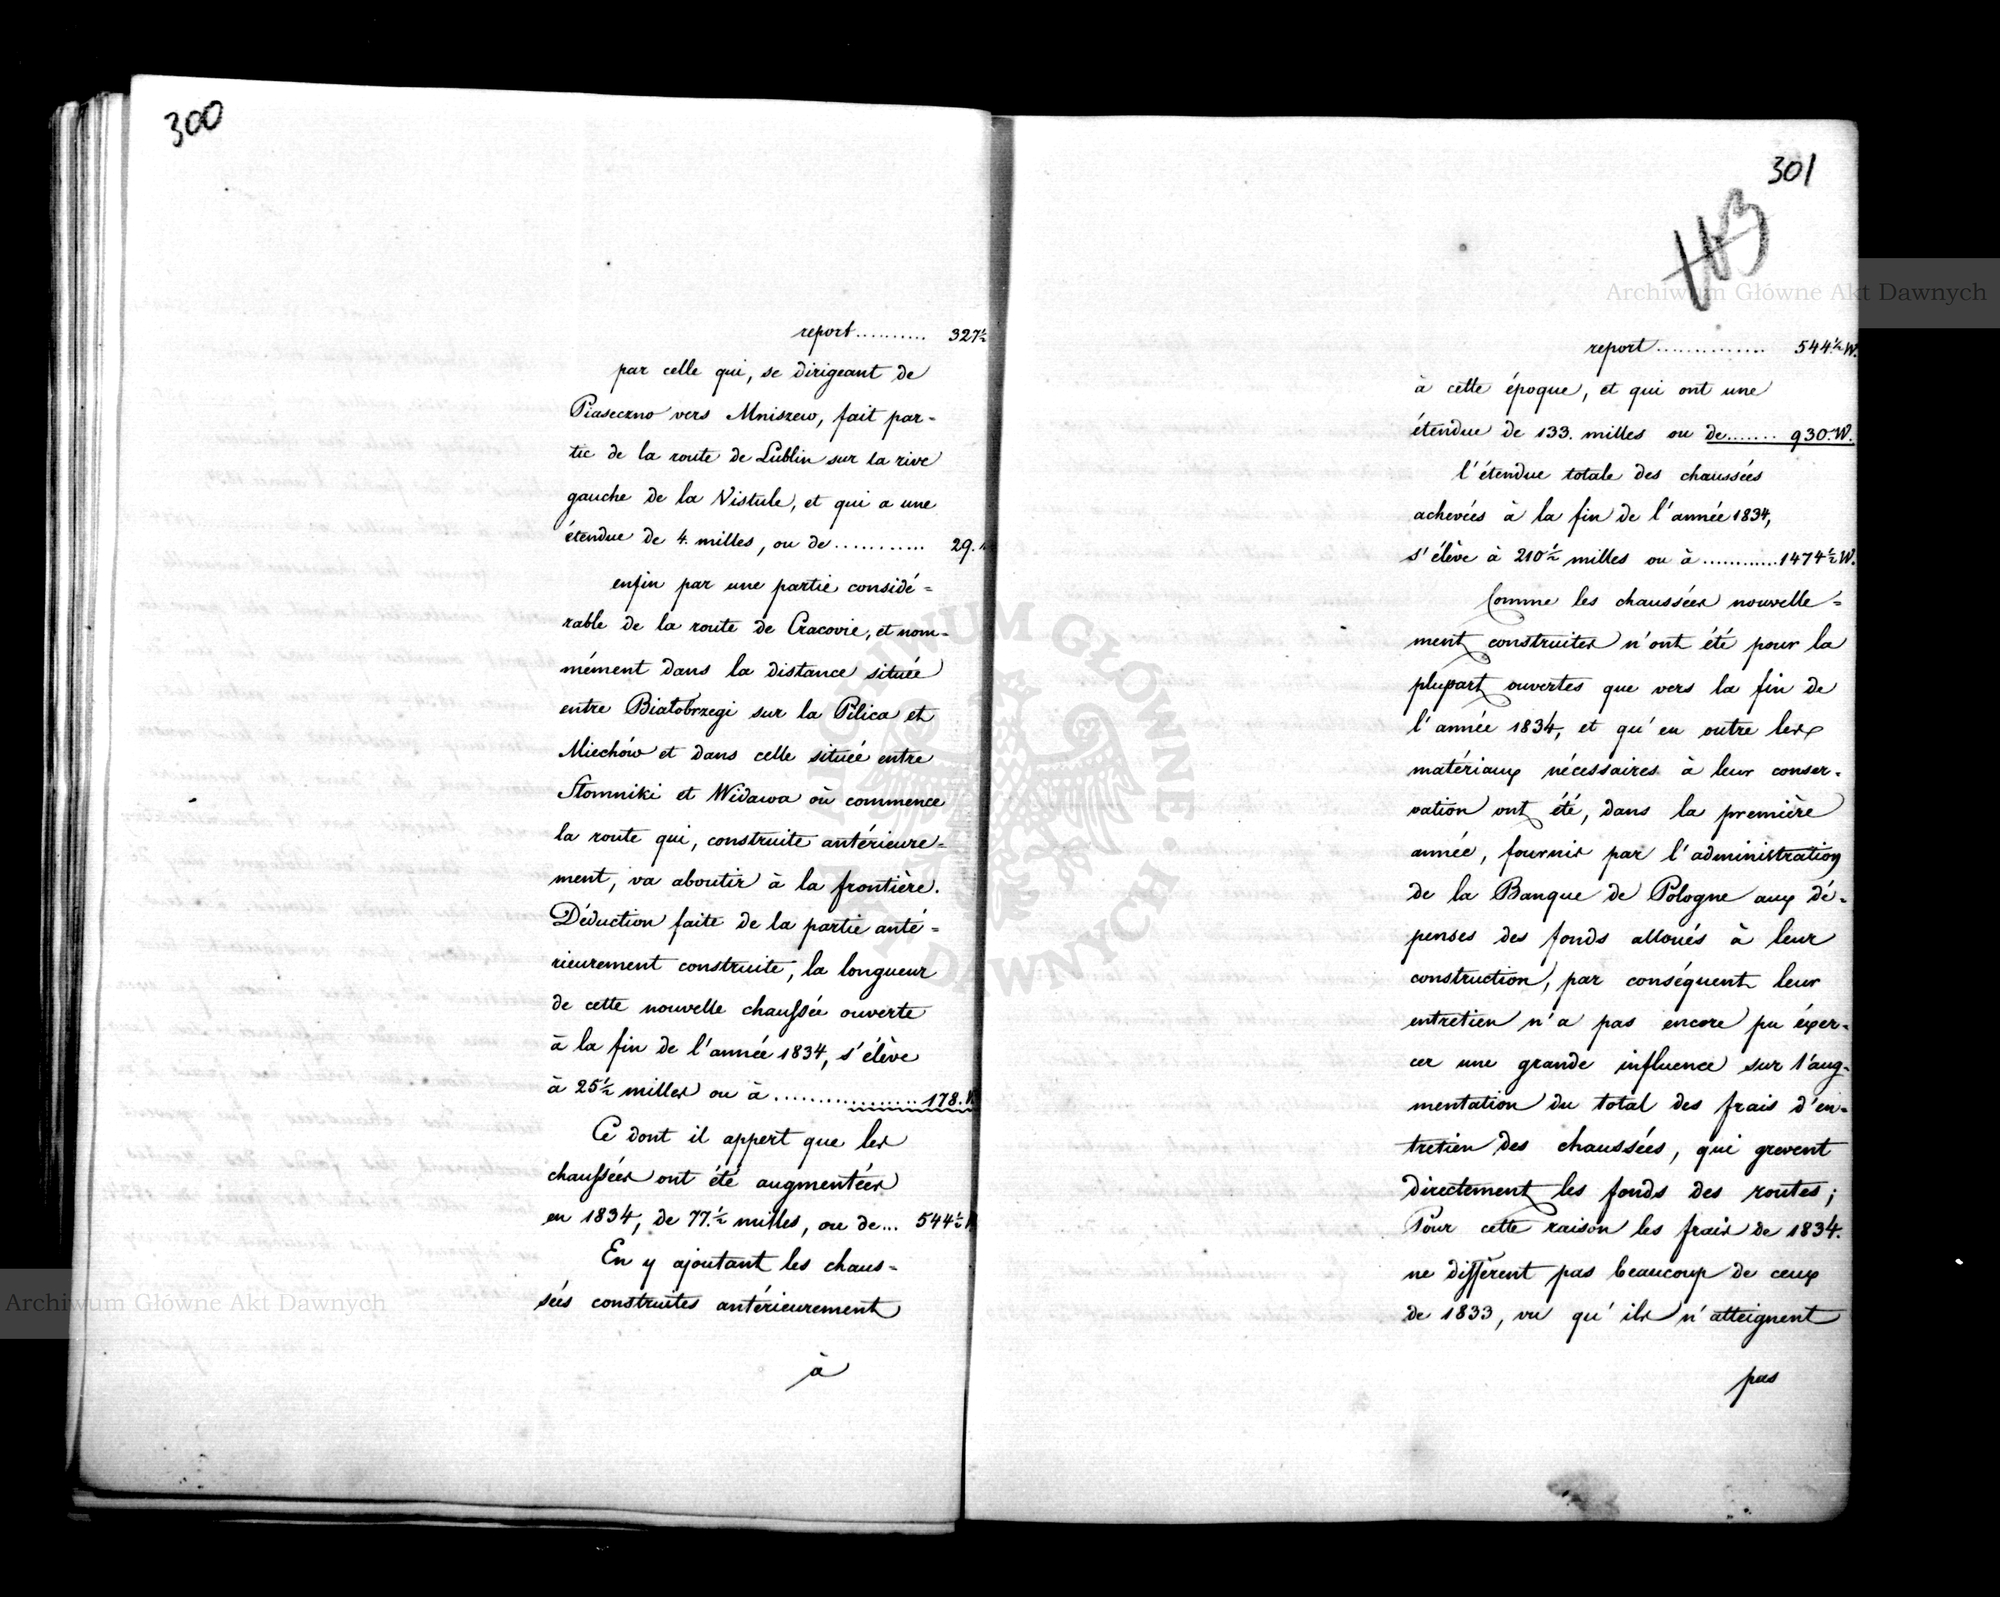 300
report.......... 327½
par celle qui, se dirigeant de
Piaseczno vers Mniszew, fait par=
tie de la route de Lublin sur la rive
gauche de la Vistule, et qui a une
étendue de 4. milles, ou de........... 29.
enfin par une partie considé=
rable de la route de Cracovie, et nom=
mément dans la distance située
entre Białobrzegi sur la Pilica et
Miechów et dans celle située entre
Słomniki et Widawa où commence
la route qui, construite antérieure=
ment, va aboutir à la frontière.
Déduction faite de la partie anté=
rieurement construite, la longueur
de cette nouvelle chaussée ouverte
à la fin de l'année 1834, s'élève
à 25½ milles ou à ................. 178. W.
Ce dont il appert que les
chaussées ont été augmentées
en 1834, de 77.½ milles, ou de... 544½ W
En y ajoutant les chaus=
sées construites antérieurement
à
301
113
report.............. 544.½ W.
à cette époque, et qui ont une
étendue de 133. milles ou de....... 930. W.
l'étendue totale des chaussées
achevées à la fin de l'année 1834,
s'élève à 210½ milles ou à............1474½ W.
Comme les chaussées nouvelle=
ment construites n'ont été pour la
plupart ouvertes que vers la fin de
l'année 1834, et qu'en outre les
matériaux nécessaires à leur conser=
vation ont été, dans la première
année, fournis par l'administration
de la Banque de Pologne aux dé=
penses des fonds alloués à leur
construction, par conséquent leur
entretien n'a pas encore pu éxer=
cer une grande influence sur l'aug=
mentation du total des frais d'en=
tretien des chaussées, qui grevent
directement les fonds des routes;
Pour cette raison les frais de 1834.
ne diffèrent pas beaucoup de ceux
de 1833, vu qu'ils n'atteignent
pas
Archiwum Główne Akt Dawnych
Archiwum Główne Akt Dawnych
ARCHIWUM GŁÓWNE AKT DAWNYCH